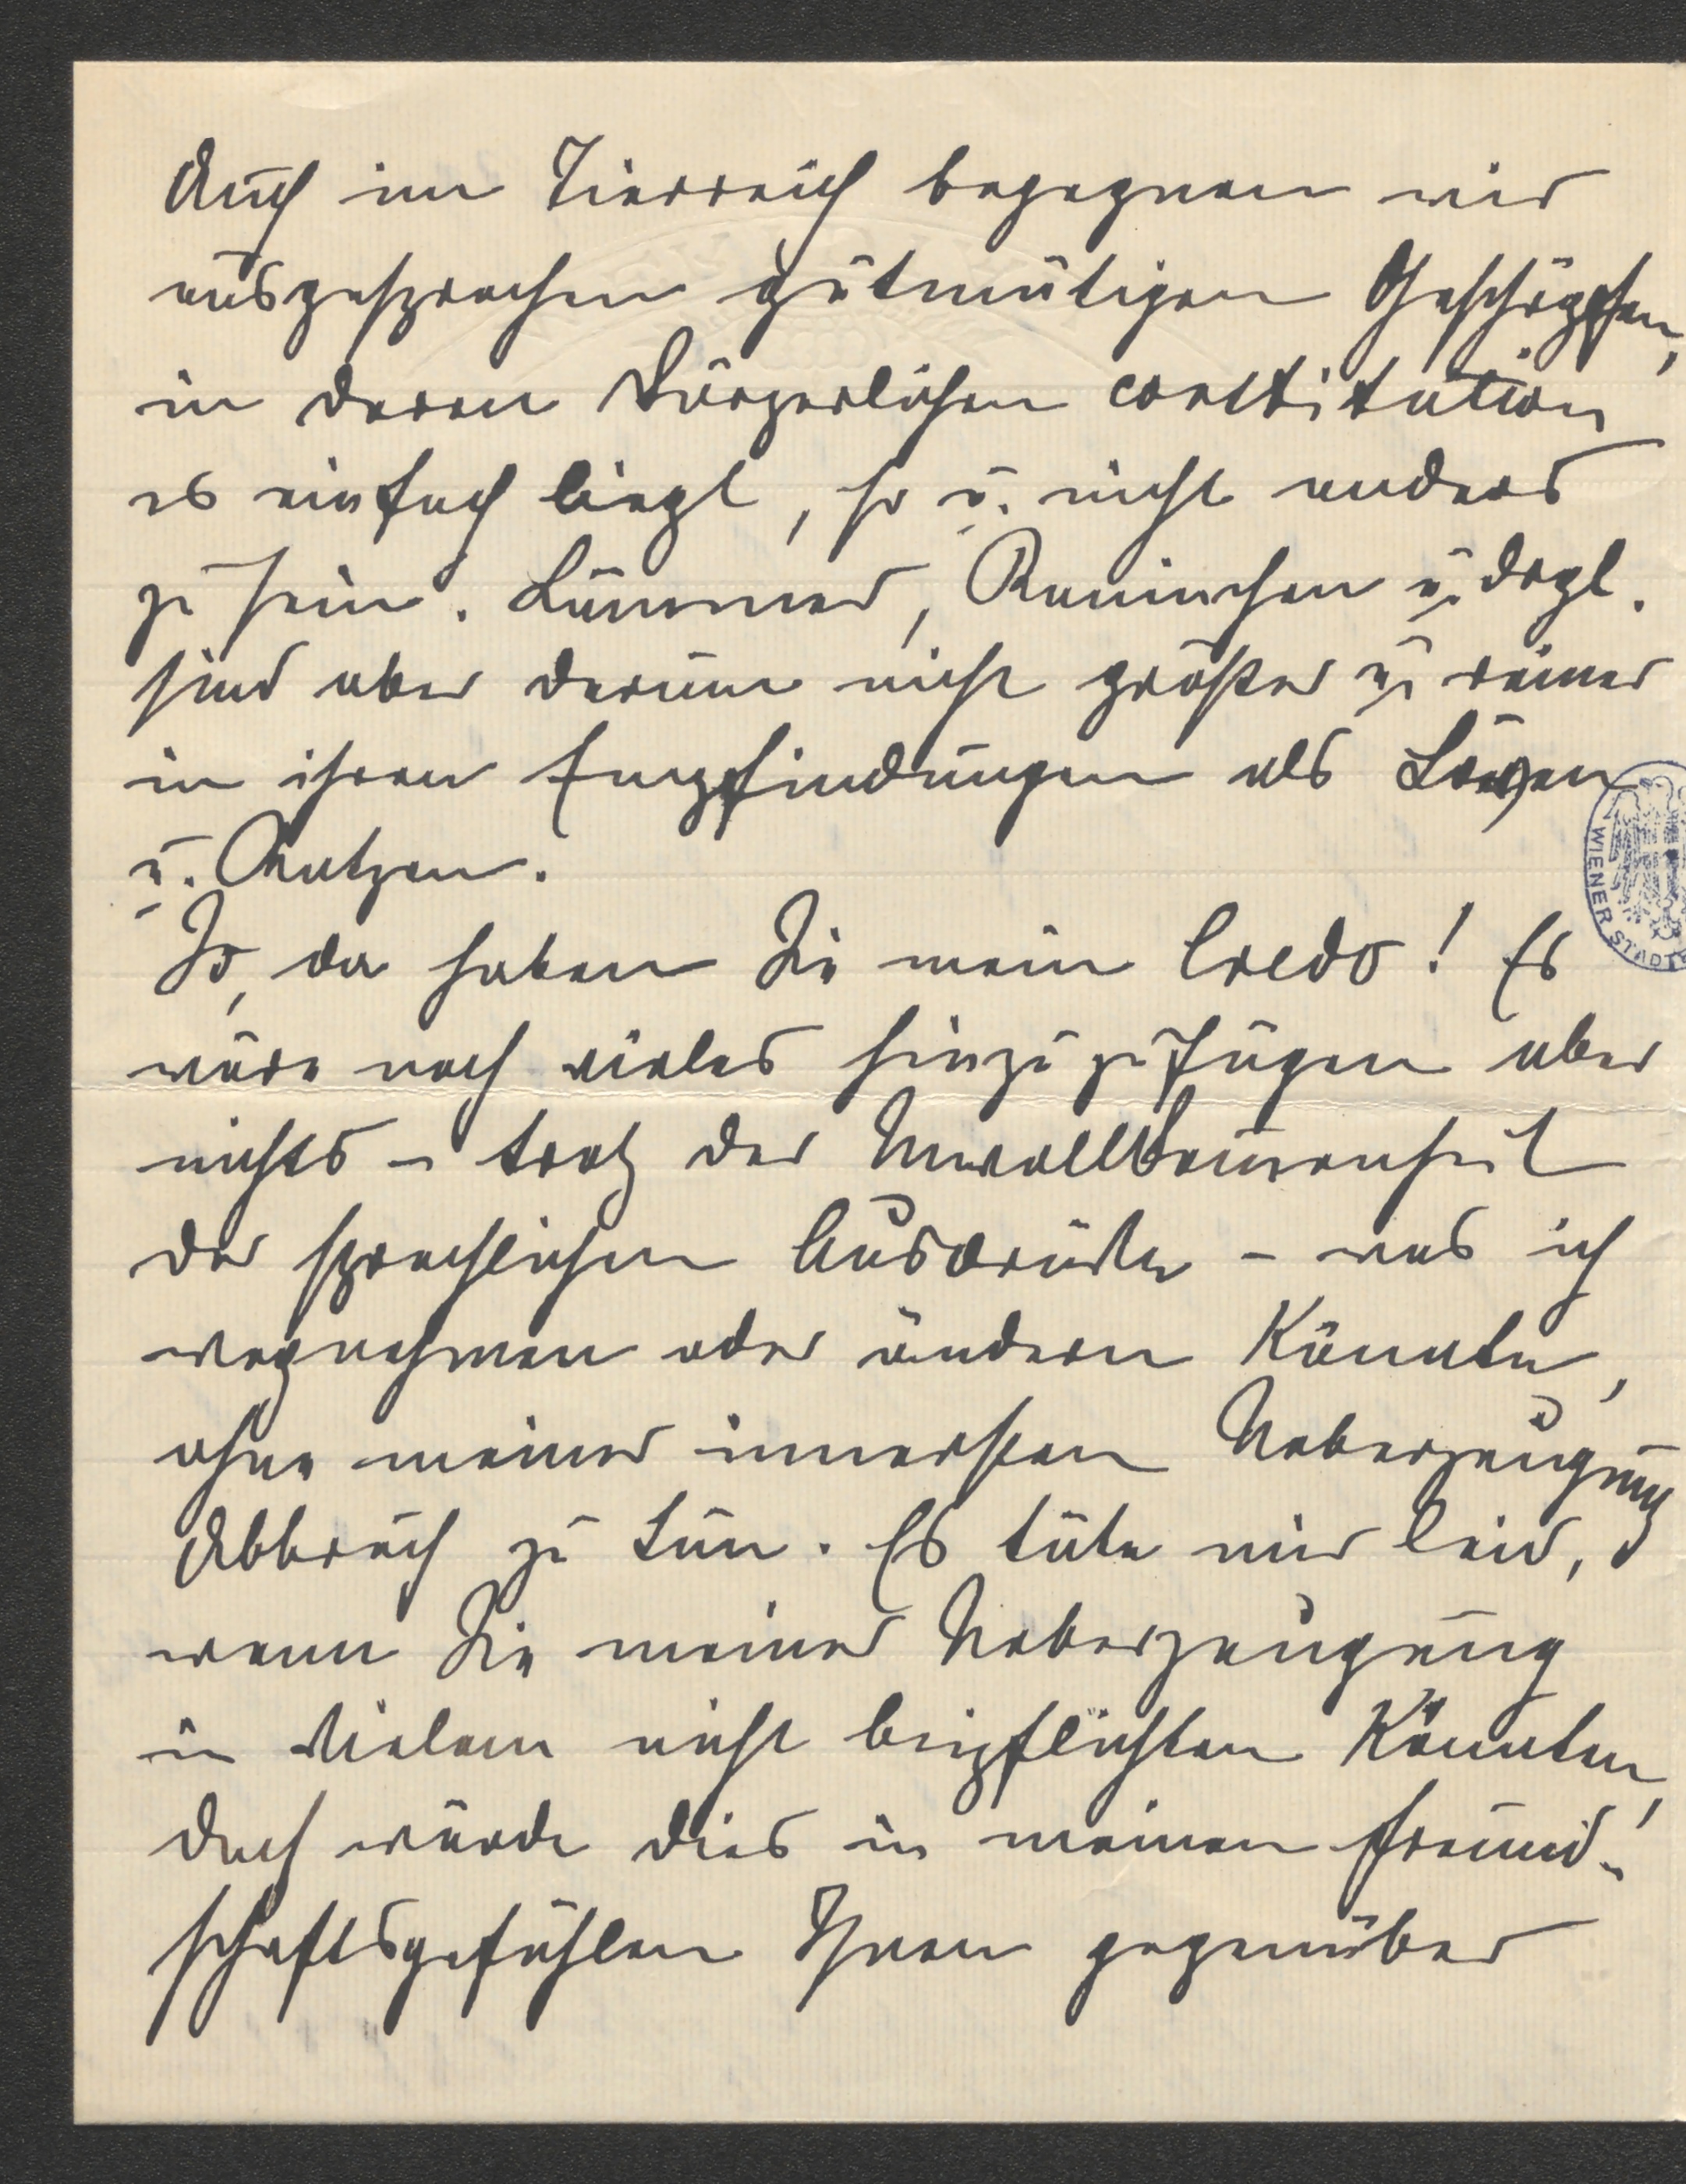 Auch im Tierreich begegnen wir
ausgesprochen gutmütigen Geschöpfen,
in deren körperlichen constitution
es einfach liegt, so u. nicht anders
zu sein. Lämmer, Kaninchen u. drgl.
sind aber darum nicht größer u. reiner
in ihren Empfindungen als Löwen
u. Katzen.
So, da haben Sie mein Credo! Es
wäre noch vieles hinzuzufügen aber
nichts – trotz der Unvollkommenheit
der sprachlichen Ausdrücke – was ich
wegnehmen oder ändern könnte,
ohne meiner innersten Ueberzeugung
Abbruch zu tun. Es täte mir leid,
wenn Sie meiner Ueberzeugung
in Vielem nicht beipflichten könnten,
doch würde dies in meinen Freund-
schaftsgefühlen Ihnen gegenüber
WIENER STADT